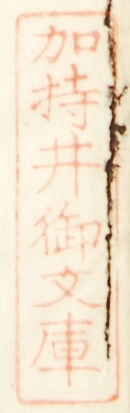 加持井御文庫